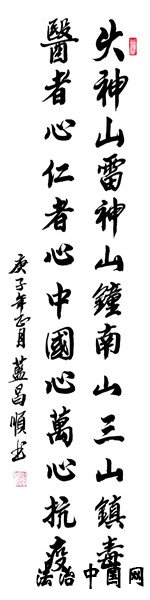 火神山雷神山鐘南山三山鎮毒
醫者心仁者心中國心萬心抗疫
庚子年正月藍昌順书
法治中国网